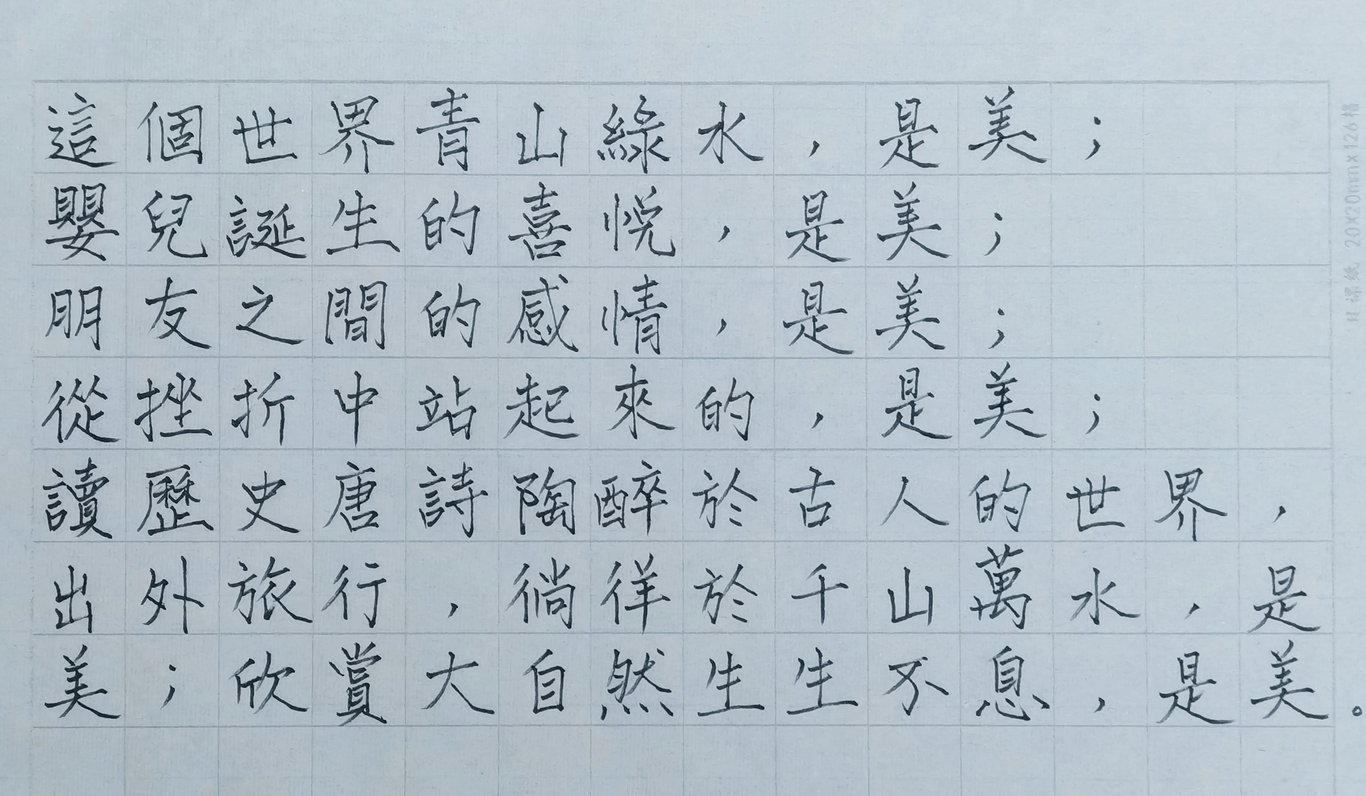 這個世界青山綠水，是美；
嬰兒誕生的喜悅，是美；
朋友之間的感情，是美；
從挫折中站起來的，是美；
讀歷史唐詩陶醉於古人的世界，
出外旅行，徜徉於千山萬水，是
美；欣賞大自然生生不息，是美。
日課紙 20X20mmx126格